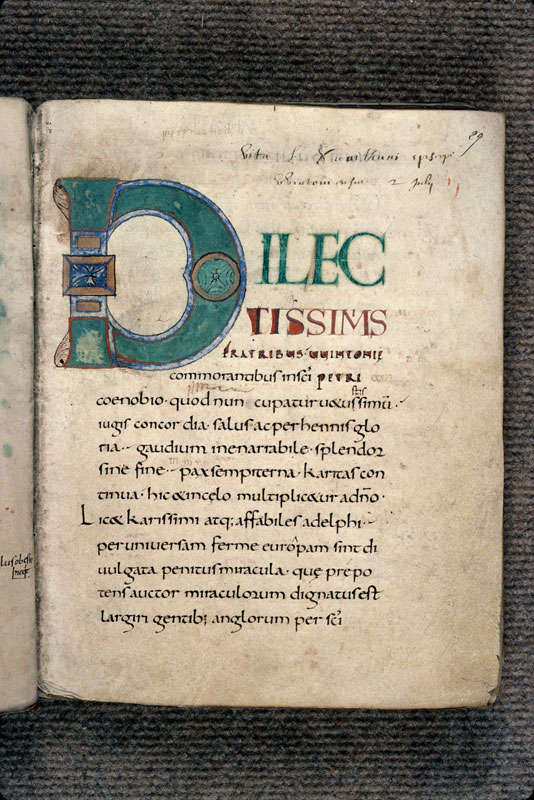 29
vita S. Swithuni epscopi
wintoniensis 2 July
DILEC
TISSIMIS
FRATRIBUS · UUINTONIĘ
commorantibus in sc̄i PETRI
coenobio · quod nuncupatur uetustissimū ·
iugis concordia · salus ac perhennis glo
ria · gaudium inenarrabile · splendor
sine fine · pax sempiterna · karitas con
tinua · hic & in cęlo multiplicetur a dn̄o ·
Licet karissimi atq; affabiles adelphi ·
per uniuersam ferme europam sint di
uulgata penitus miracula · quę prepo
tens auctor miraculorum dignatus est
largiri gentib; anglorum per sc̄i